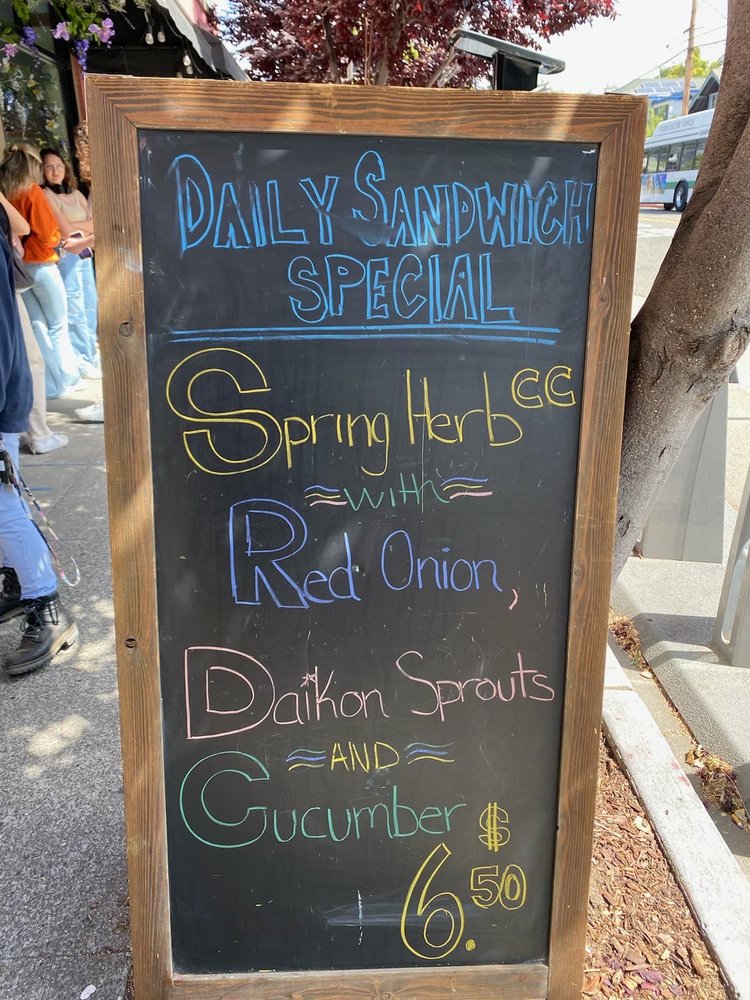 DAILY SANDWICH
SPECIAL
Spring Herb CC
with
Red Onion,
Daikon Sprouts
AND
Cucumber $
6.50